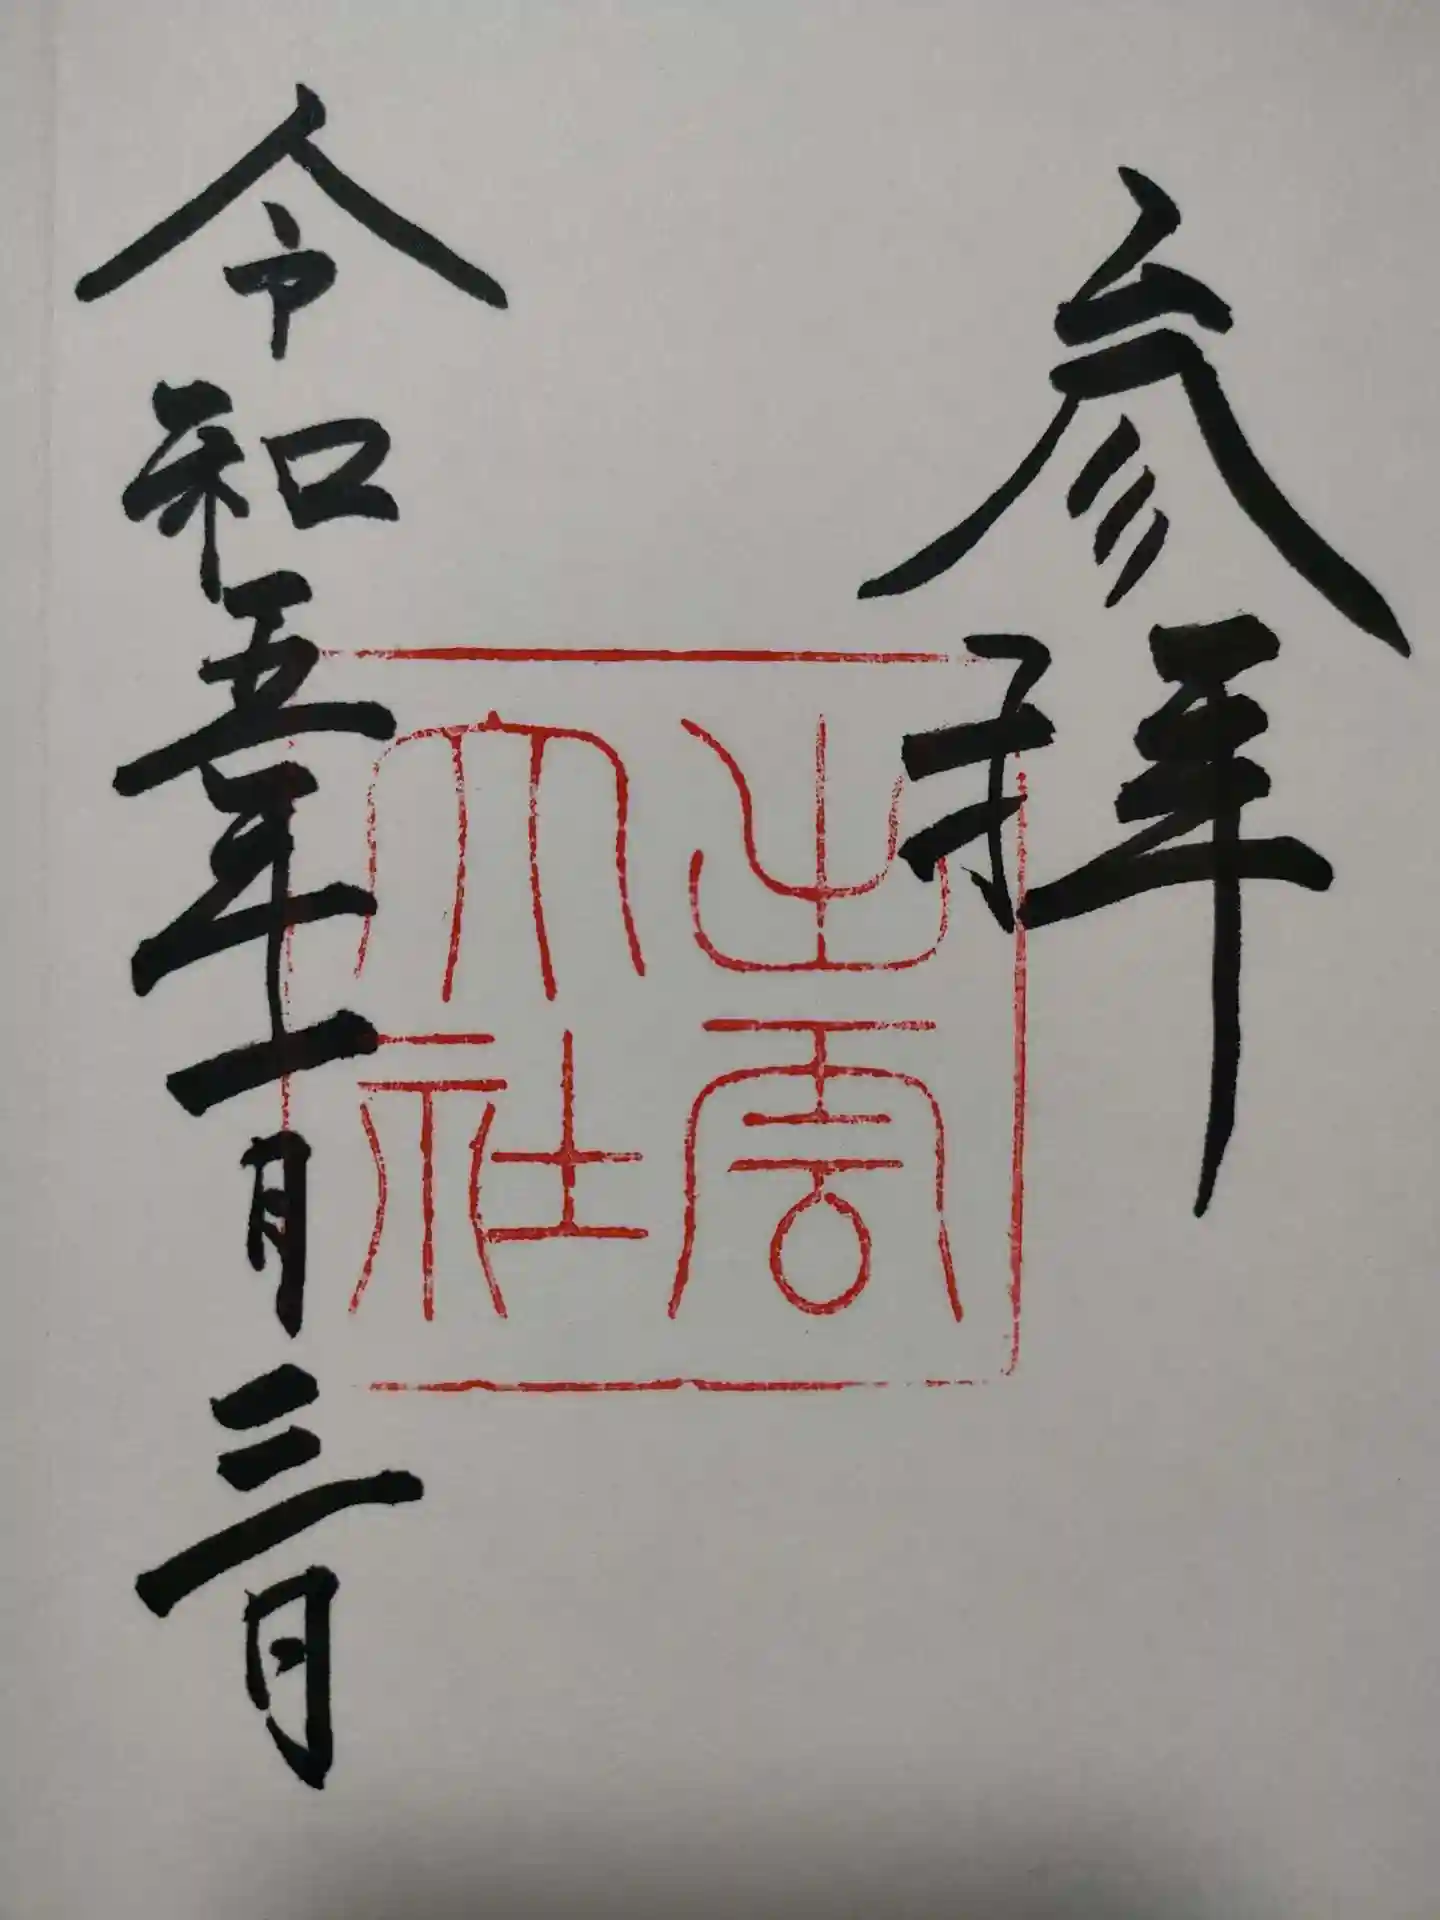 参拝
出雲大社
令和五年一月三日